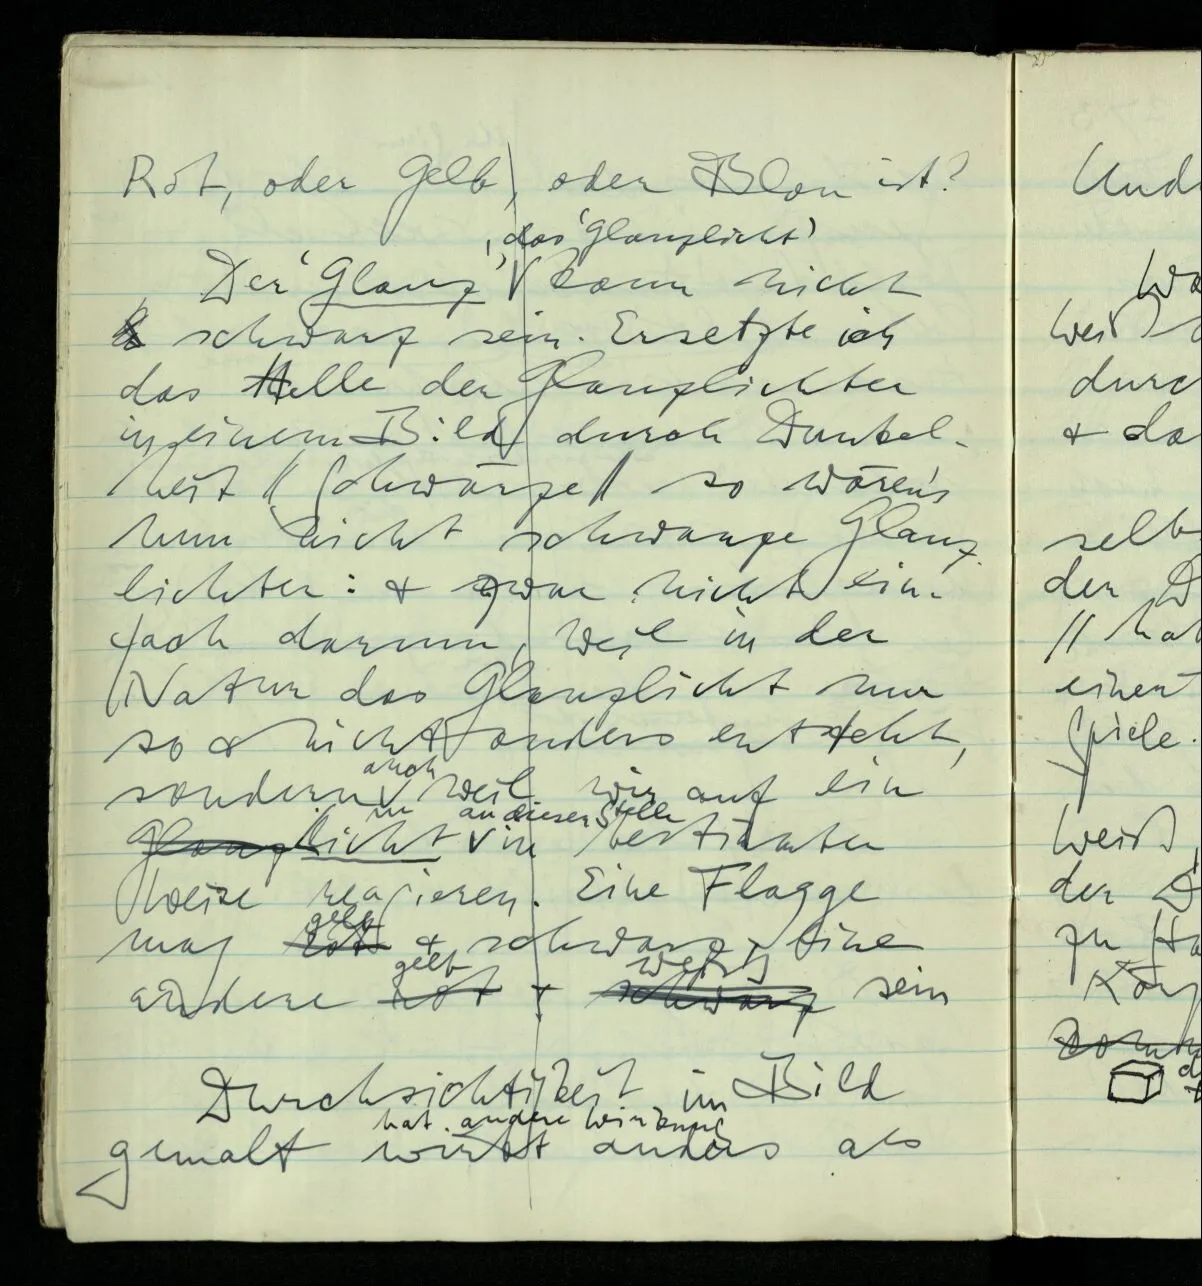 Rot, oder Gelb, oder Blau ist?
, das 'Glanzlicht'
Der 'Glanz', kann nicht
schwarz sein. Ersetzte ich
das Helle der Glanzlichter
in einem Bild durch Dunkel-
heit // Schwärze // so wären's
nun nicht schwarze Glanz-
lichter: & zwar nicht ein-
fach darum, weil in der
Natur das Glanzlicht nur
so & nicht anders entsteht,
auch
sondern weil wir auf ein
an dieser Stelle
Glanzlicht in bestimmter
Weise reagieren. Eine Flagge
gelb
mag rot & schwarz, eine
gelb weiß
andere rot + schwarz sein
Durchsichtigkeit im Bild
hat andere Wirkung
gemalt wirkt anders als
Und
weiß
durch
& da
selb
der D
// hat
einen
Spiele.
weiß,
der D
zu